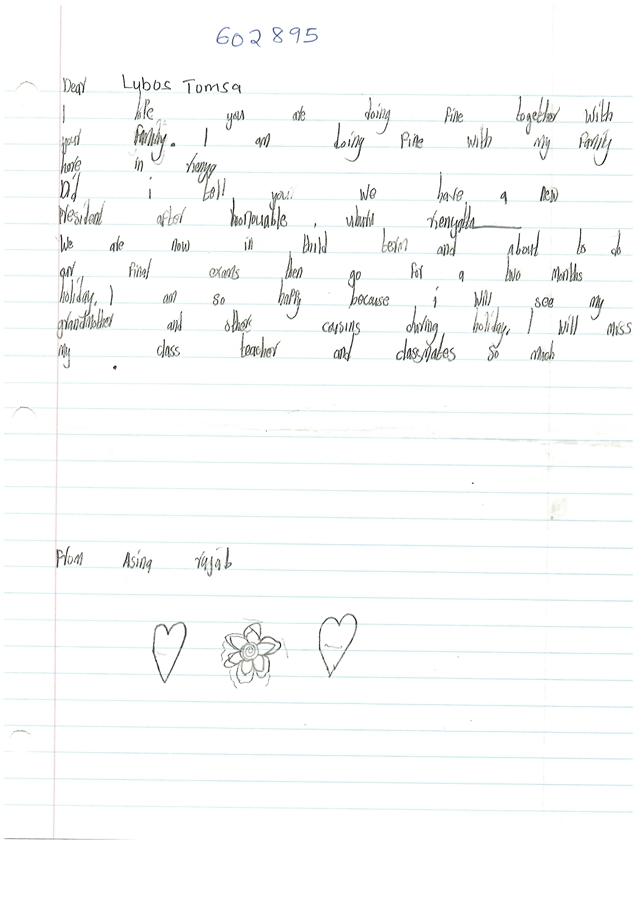 602895
Dear Lybos Tomsa
I hope you are doing fine together with
your family. I am doing fine with my family
here in kenya
Did i tell you we have a new
president after honourable, uhuru kenyatta
We are now in third term and about to do
our final exams then go for a two months
holiday. I am so happy because i will see my
grandmother and other cousins during holiday. I will miss
my class teacher and classmates so much
.
From Asina rajab